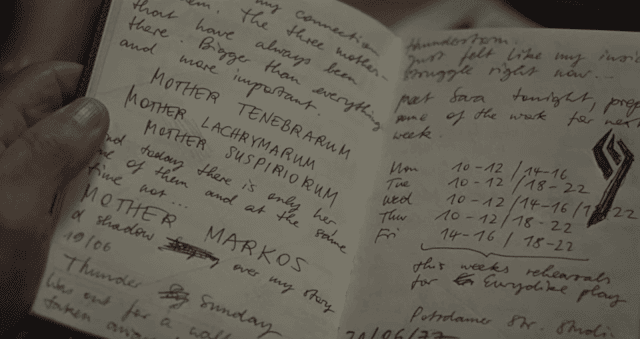 my connection
them. The three mothers
that have always been
there. Bigger than everything
and more important.
MOTHER TENEBRARUM
MOTHER LACHRYMARUM
MOTHER SUSPIRIORUM
And today there is only her
one of them and at the same
time not...
MOTHER MARKOS
a shadow over my story
19/06
Thunder Sunday
Was out for a walk
taken
thunderstorm.
just felt like my
struggle right now...
meet Sara tonight,
some of the work for next
week.
Mon 10-12 / 14-16
Tue 10-12 / 18-22
Wed 10-12 / 14-16 / 18-22
Thur 10-12 / 18-22
Fri 14-16 / 18-22
this weeks rehearsals
for Eurydike play
Potsdamer Str.
20/06/77